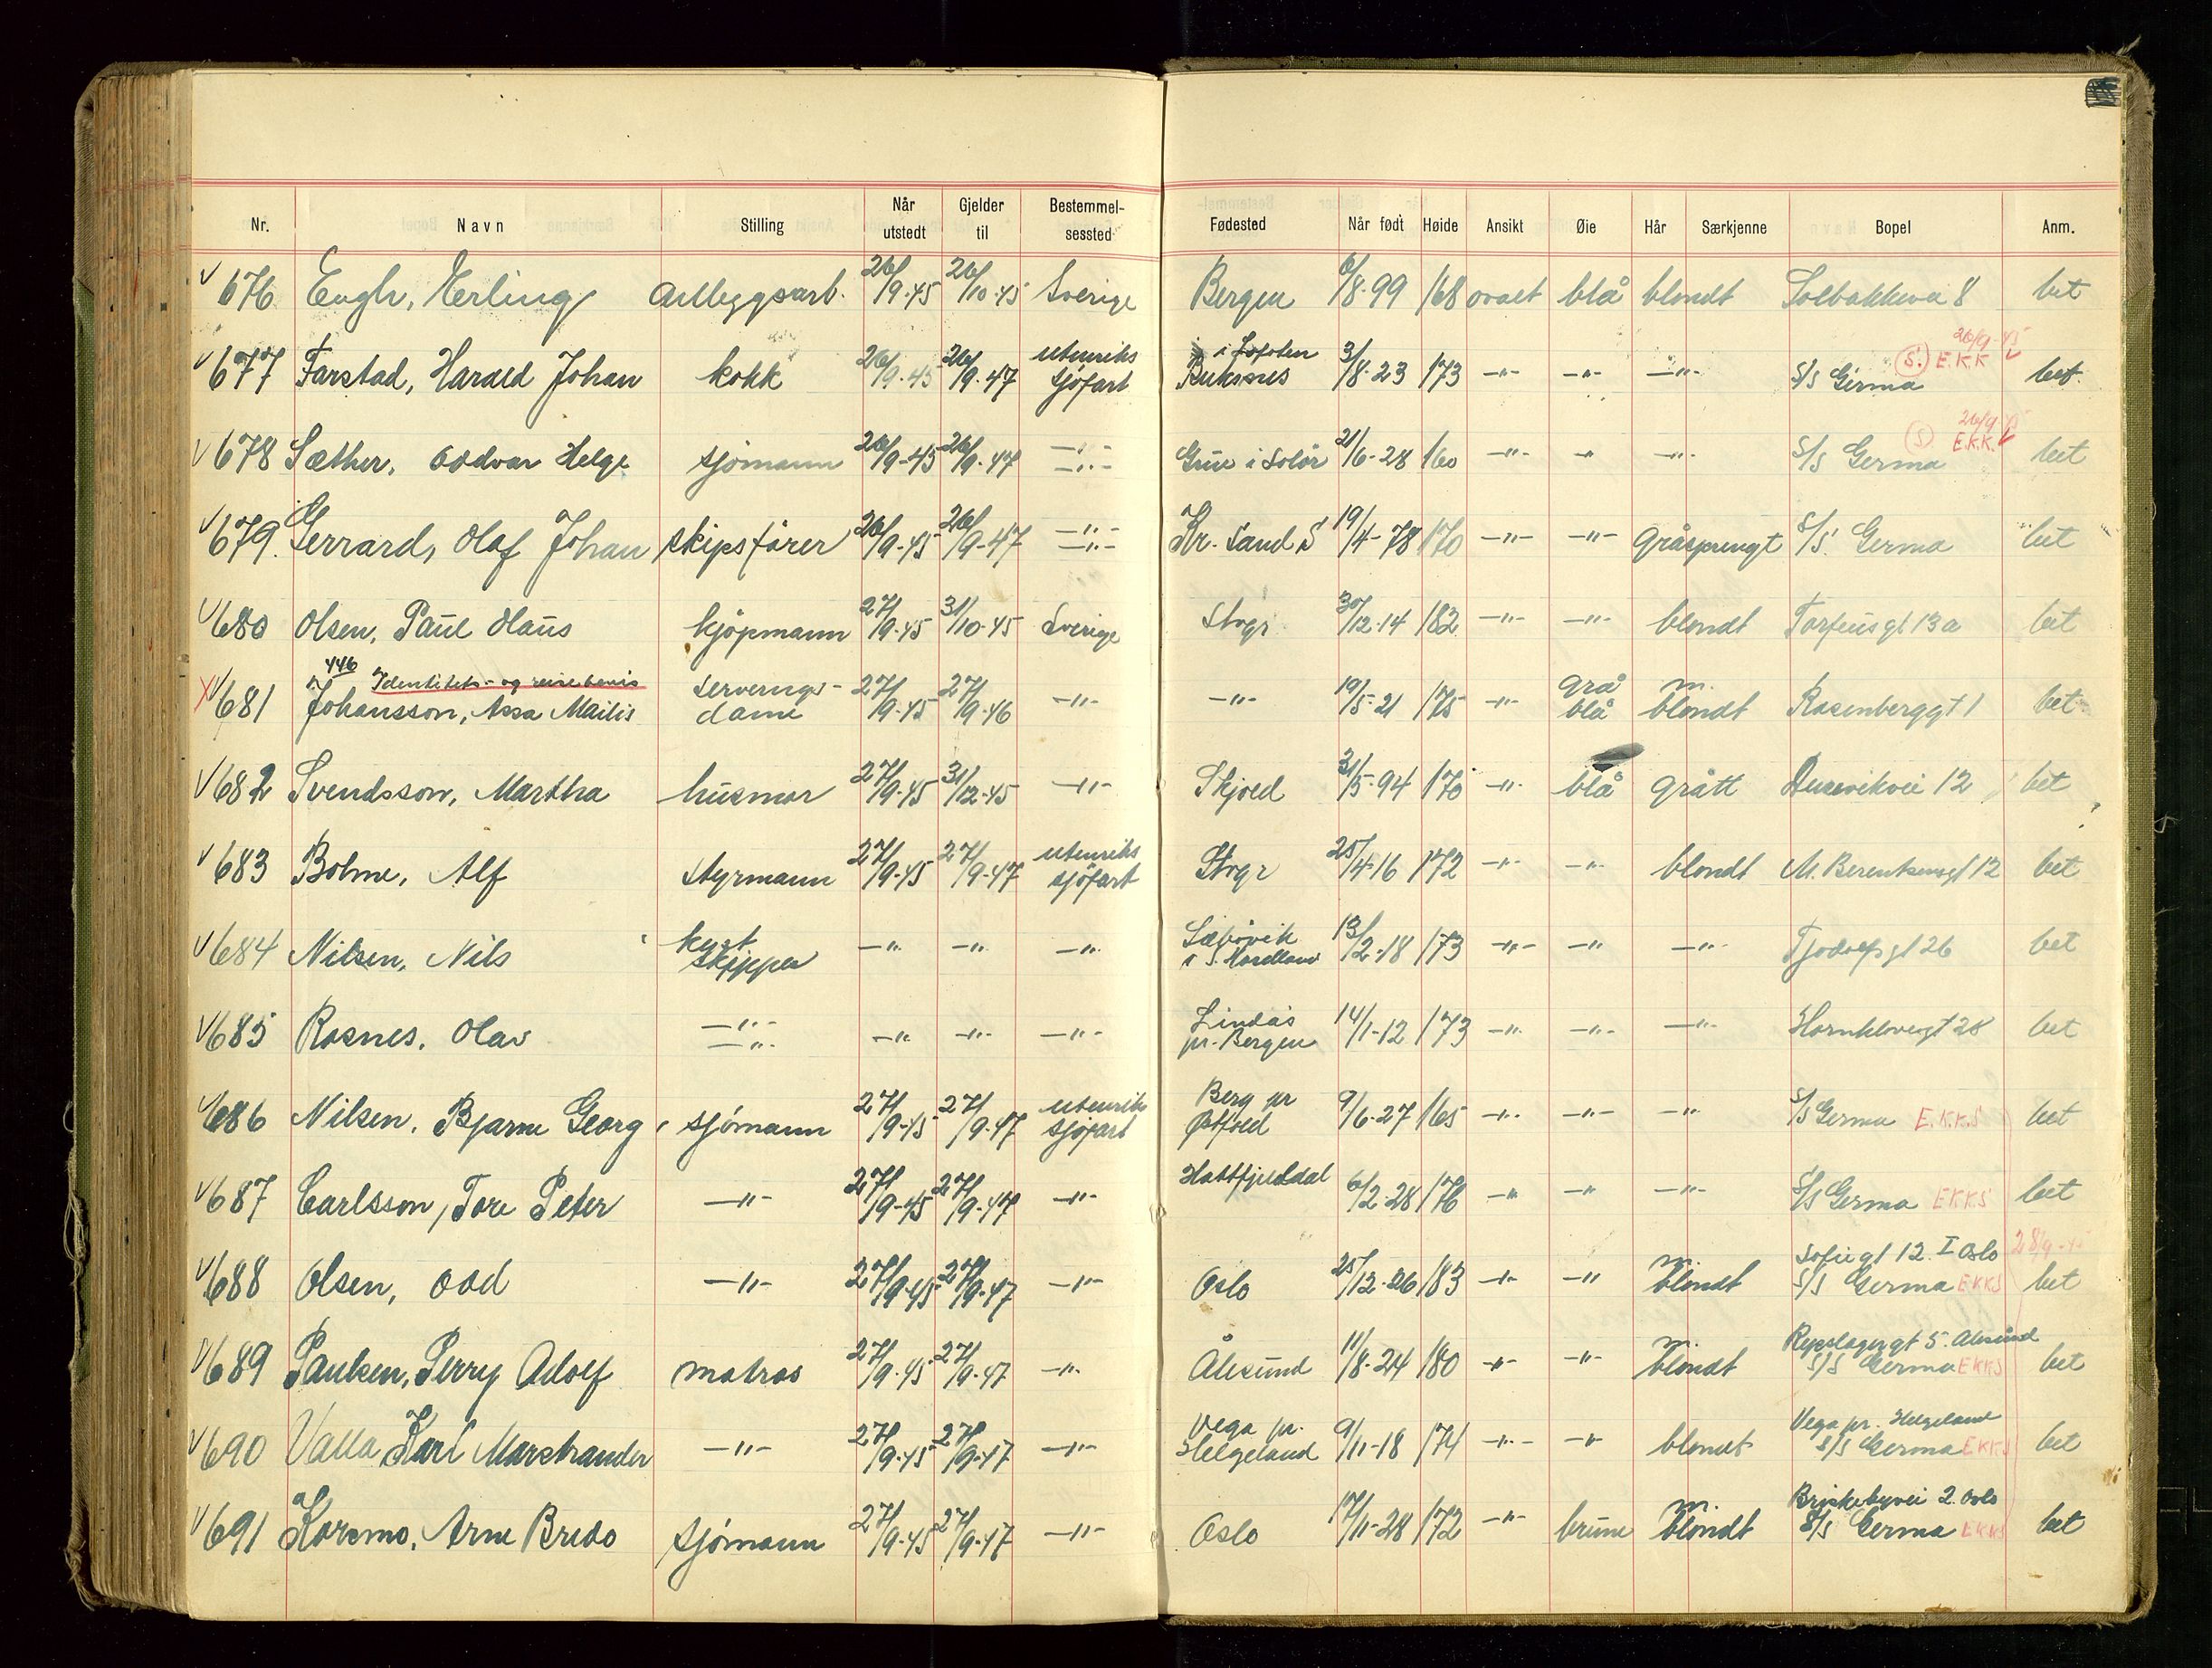 Nr. Navn Stilling Når utstedt Gjelder til Bestemmelsessted Fødested Når født Høide Ansikt Øie Hår Særkjenne Bopel Anm.
√ 676 Engh, Erling anleggsarb. 26/9-45 26/10-45 Sverige Bergen 6/8-99 168 ovalt blå blondt Solbakkevei 8 bet
26/9-45
√ 677 Farstad, Harald Johan kokk 26/9-45 26/9-47 utenriks sjøfart Buksnes i Lofoten 3/8-23 173 -"- -"- -"- S/S Germa (S.) E.K.K √ bet.
26/9-45
√ 678 Sæther, Oddvar Helge sjømann 26/9-45 26/9-47 -"- -"- Grue i Solør 21/6-28 160 -"- -"- -"- S/S Germa (S) E.K.K. √ bet
√ 679. Gerrard, Olaf Johan skipsfører 26/9-45 26/9-47 -"- -"- Kr. Sand S 19/4-78 170 -"- -"- gråsprengt S/S. Germa bet
√ 680 Olsen, Paul Hans kjøpmann 27/9-45 31/10-45 Sverige Stvgr. 30/12-14 182 -"- -"- blondt Torfeusgt 13a bet
446 Identitets- og reisebevis
X √ 681 Johansson, Assa Mailis serverings-dame 27/9-45 27/9-46 -"- -"- 19/5-21 175 -"- grå blå m. blondt Rosenberggt 1 bet
√ 682 Svendsson, Martha husmor 27/9-45 31/12-45 -"- Skjold 31/5-94 170 -"- blå grått Dusevikvei 12 bet
√ 683 Bohne, Alf styrmann 27/9-45 27/9-47 utenriks sjøfart Stvgr 25/4-16 172 -"- -"- blondt M. Berentsensgt 12 bet
√ 684 Nilsen, Nils kyst skipper -"- -"- -"- Sæbøvik i S. Hordland 13/2-18 173 -"- -"- -"- Tjodolfsgt 26 bet
√ 685 Rosnes, Olav -"- -"- -"- -"- -"- Lindås pr. Bergen 14/1-12 173 -"- -"- -"- Hornklovesgt 28 bet
√ 686 Nilsen, Bjarne Georg sjømann 27/9-45 27/9-47 utenriks sjøfart Berg pr Østfold 9/6-27 165 -"- -"- -"- S/S Germa E.K.K.S bet
√ 687 Carlsson, Tore Peter -"- 27/9-45 27/9-47 -"- Hattfjelldal 6/2-28 176 -"- -"- -"- S/S Germa EKKS bet
Sofiegt 12. I Oslo 28/9-45
√ 688 Olsen, Odd -"- 27/9-45 27/9-47 -"- Oslo 25/12-26 183 -"- -"- m. blondt S/S Germa EKKS bet
Repslagergt 5. Ålesund
√ 689 Paulsen, Perry Adolf matros 27/9-45 27/9-47 -"- Ålesund 11/8-24 180 -"- -"- m. blondt S/S Germa EKKS bet
Vega pr. Helgeland
√ 690 Valla Karl Marstrander -"- 27/9-45 27/9-47 -"- Vega pr. Helgeland 9/11-18 174 -"- -"- blondt S/S Germa EKKS bet
Briskebyvei 2. Oslo
√ 691 Korsmo, Arne Bredo sjømann 27/9-45 27/9-47 -"- Oslo 17/11-28 172 -"- brune m. blondt S/S Germa EKKS bet